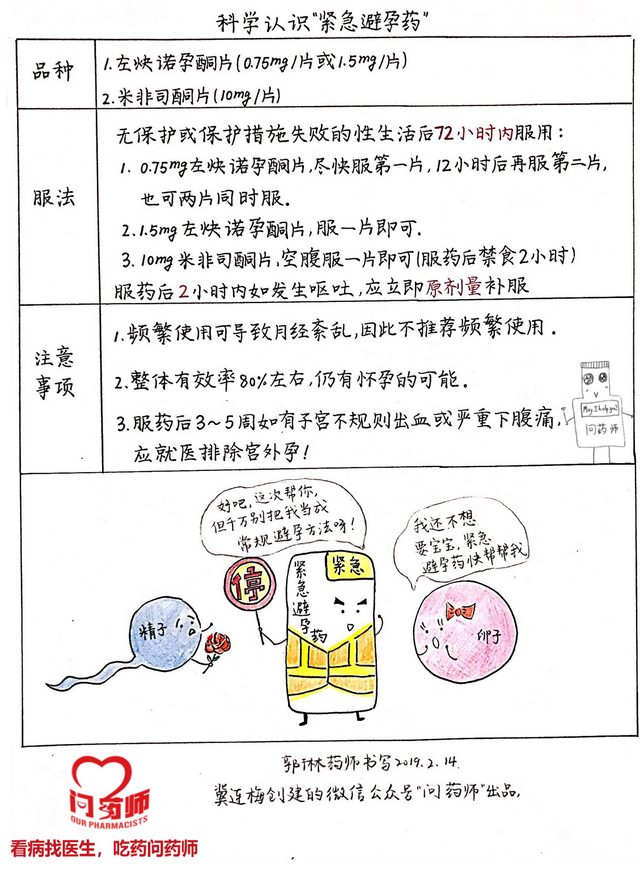 科学认识“紧急避孕药”
品种
1.左炔诺孕酮片(0.75mg/片或1.5mg/片)
2.米非司酮片(10mg/片)
服法
无保护或保护措施失败的性生活后72小时内服用：
1. 0.75mg左炔诺孕酮片,尽快服第一片,12小时后再服第二片,
也可两片同时服.
2.1.5mg左炔诺孕酮片,服一片即可.
3. 10mg米非司酮片,空腹服一片即可(服药后禁食2小时)
服药后2小时内如发生呕吐,应立即原剂量补服
注意
事项
1.频繁使用可导致月经紊乱,因此不推荐频繁使用.
2.整体有效率80%左右,仍有怀孕的可能.
3.服药后3~5周如有子宫不规则出血或严重下腹痛,
应就医排除宫外孕!
问药师
好吧,这次帮你,
但千万别把我当成
常规避孕方法呀!
我还不想
要宝宝,紧急
避孕药快帮帮我
停
紧急
紧急避孕药
精子
卵子
郭琳药师书写2019.2.14.
冀连梅创建的微信公众号“问药师”出品.
问药师
OUR PHARMACISTS
看病找医生，吃药问药师